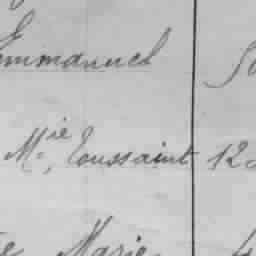 Emmanuel
Mie Toussaint 12
Marie